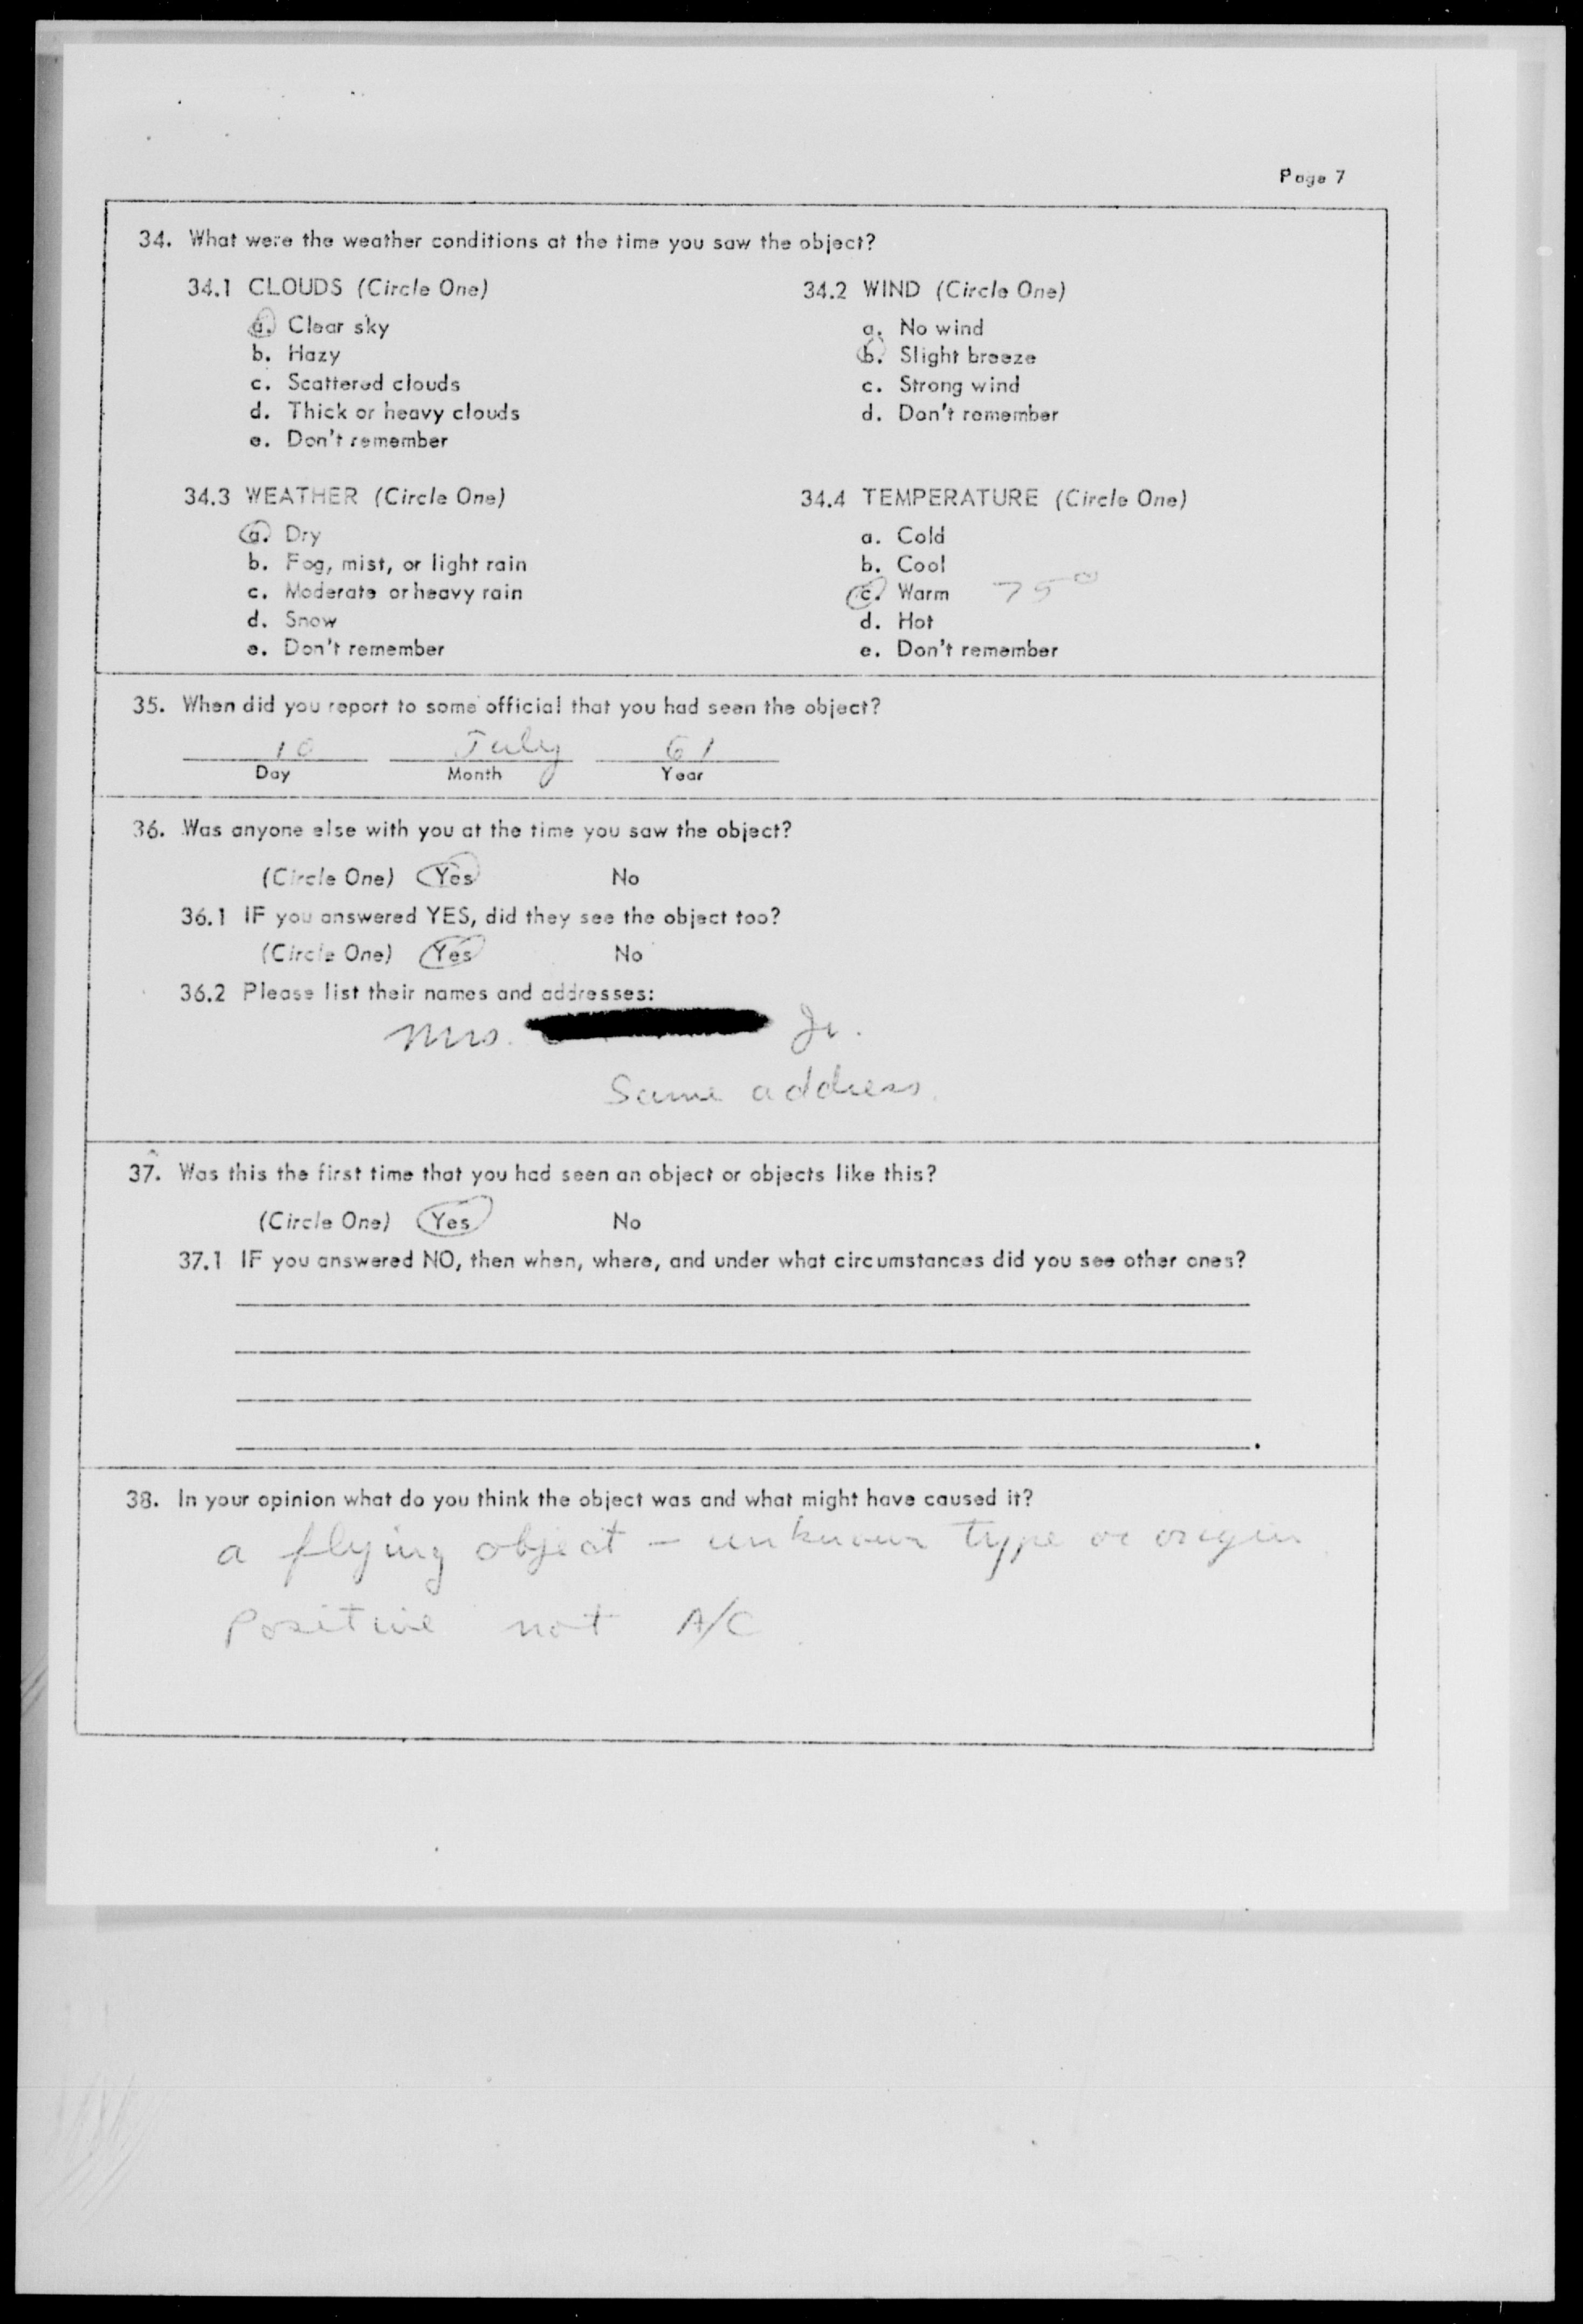 Page 7
34. What were the weather conditions at the time you saw the object?
34.1 CLOUDS (Circle One)
a. Clear sky
b. Hazy
c. Scattered clouds
d. Thick or heavy clouds
e. Don't remember
34.2 WIND (Circle One)
a. No wind
b. Slight breeze
c. Strong wind
d. Don't remember
34.3 WEATHER (Circle One)
a. Dry
b. Fog, mist, or light rain
c. Moderate or heavy rain
d. Snow
e. Don't remember
34.4 TEMPERATURE (Circle One)
a. Cold
b. Cool
c. Warm 75°
d. Hot
e. Don't remember
35. When did you report to some official that you had seen the object?
10 July 61
Day Month Year
36. Was anyone else with you at the time you saw the object?
(Circle One) Yes No
36.1 IF you answered YES, did they see the object too?
(Circle One) Yes No
36.2 Please list their names and addresses:
Mrs. Jr.
Same address.
37. Was this the first time that you had seen an object or objects like this?
(Circle One) Yes No
37.1 IF you answered NO, then when, where, and under what circumstances did you see other ones?
38. In your opinion what do you think the object was and what might have caused it?
a flying object - unknown type or origin.
Positive not A/C.